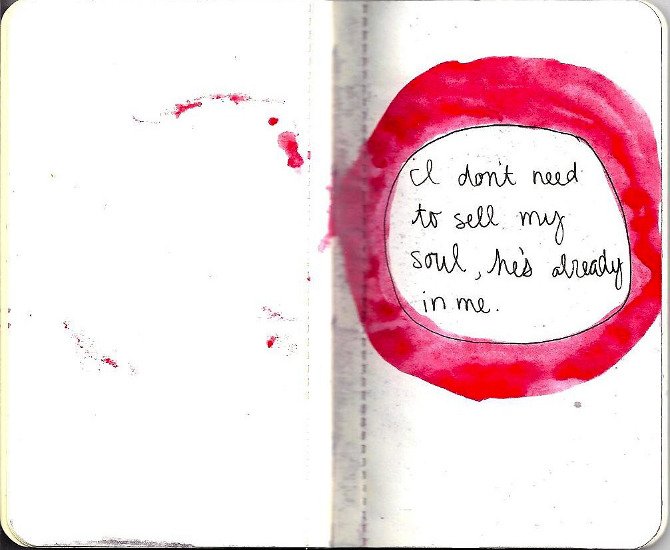 I don't need
to sell my
soul, he's already
in me.